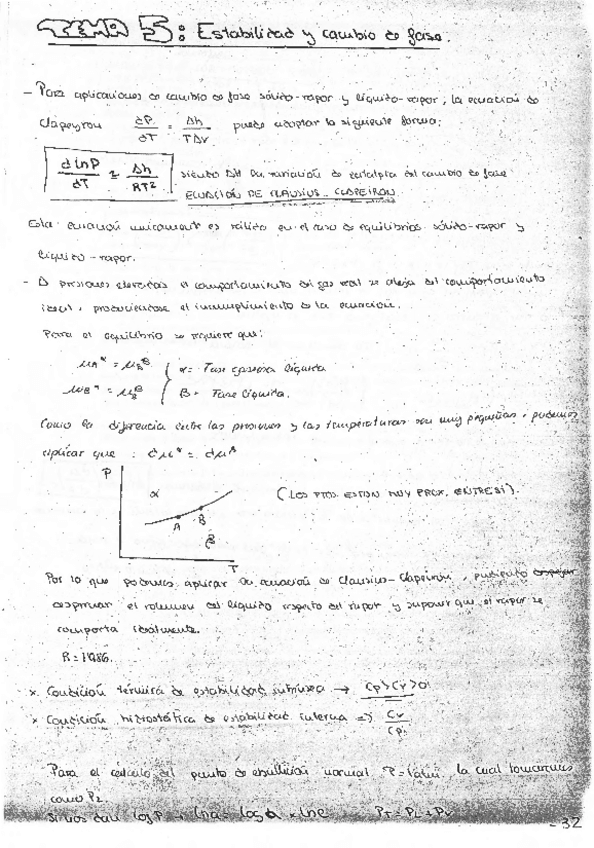 TEMA 5: Estabilidad y cambio de fase.
- Para aplicaciones de cambio de fase sólido-vapor y líquido-vapor, la ecuación de
Clapeyron dP/dT = Δh/TΔv puede adoptar la siguiente forma:
d ln P/dT ≃ Δh/RT² siendo Δh la variación de entalpía del cambio de fase
ECUACIÓN DE CLAUSIUS-CLAPEIRON
Esta ecuación unicamente es válida en el caso de equilibrios sólido-vapor y
líquido-vapor.
- A presiones elevadas el comportamiento del gas real se aleja del comportamiento
ideal, produciendose el incumplimiento de la ecuación.
Para el equilibrio se requiere que:
μA^α = μA^β α = Fase gaseosa líquida
μB^α = μB^β β = Fase líquida.
Como la diferencia entre las presiones y las temperaturas son muy pequeñas, podemos
aplicar que : dμ^α = dμ^β
P
α
(LOS PTOS ESTÁN MUY PROX. ENTRE SÍ).
A B
β
T
Por lo que podemos aplicar la ecuación de Clausius-Clapeirón, pudiendo
despreciar el volumen del líquido respecto del vapor y suponer que el vapor se
comporta idealmente.
R = 1'986.
* Condición térmica de estabilidad intrínseca → Cp > Cv > 0
* Condición hidrostática de estabilidad interna => Cv/Cp
Para el cálculo del punto de ebullición normal P = 1 atm. la cual tomaremos
como P2
Si nos dan log P → ln a = log a × ln e PT = PL + PV
- 32